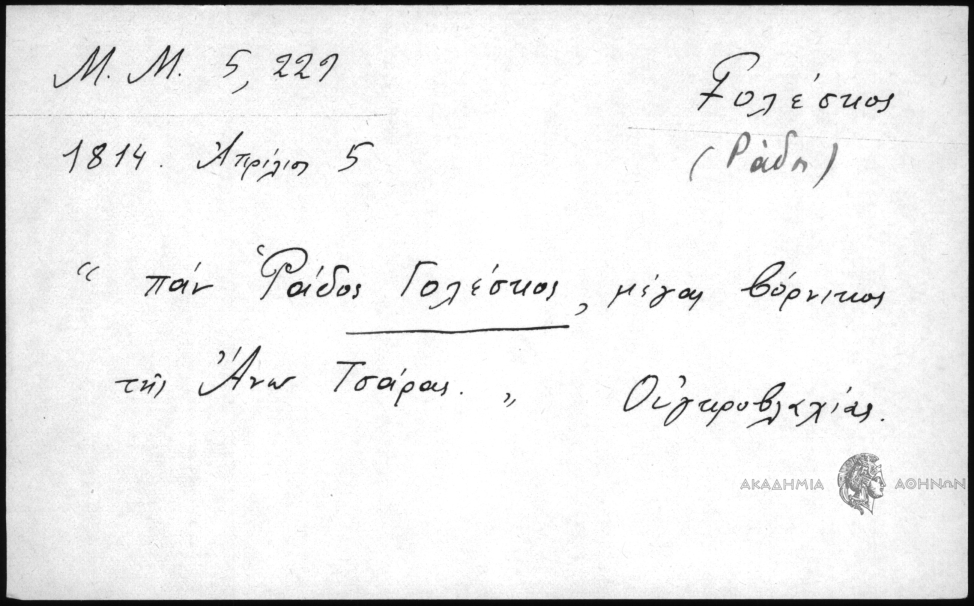 Μ. Μ. 5, 229
Γολέσκος
(Ράδη)
1814. Ἀπρίλιος 5
“ πάν Ῥάδος Γολέσκος, μέγας βόρνικος
τῆς Ἄνω Τσάρας. „ Οὐγκροβλαχίας.
ΑΚΑΔΗΜΙΑ ΑΘΗΝΩΝ